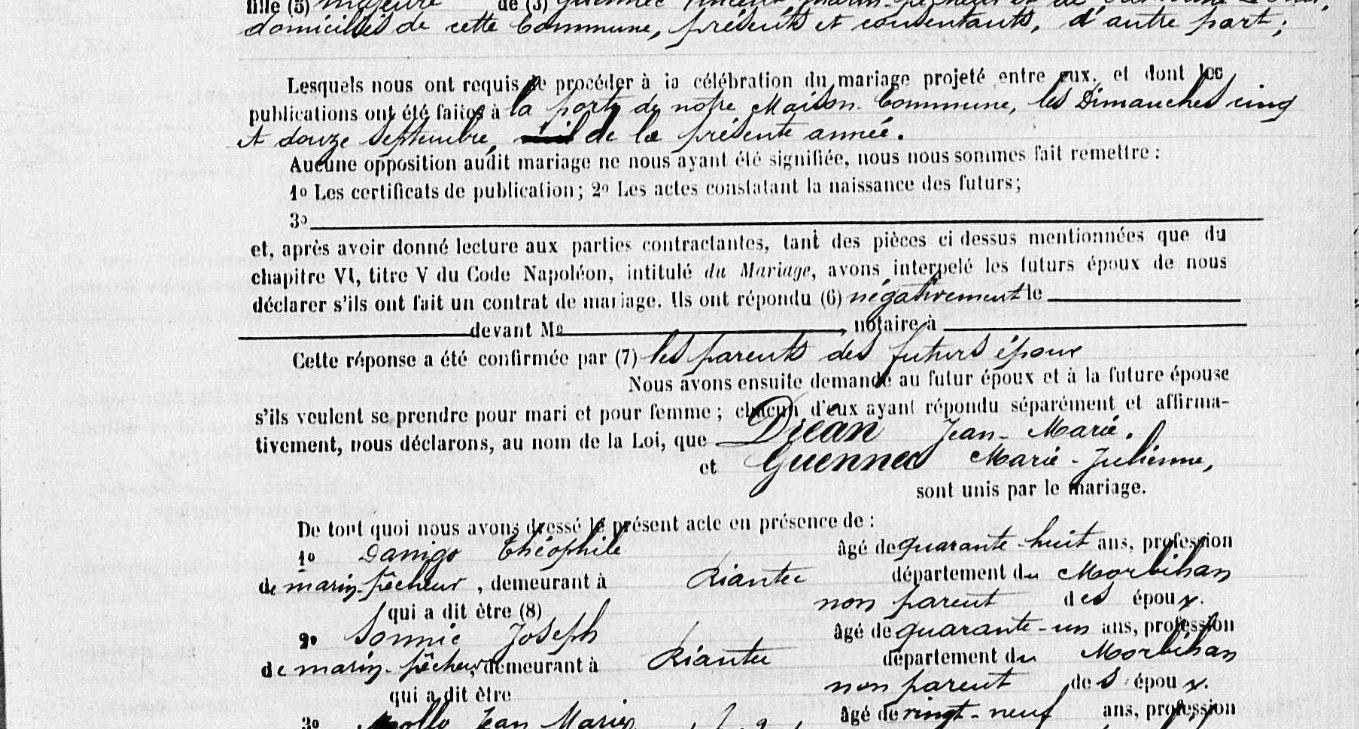 fille (5) majeure de (3) Guennec marin-pêcheur et de
domiciliés de cette Commune, présents et consentants, d'autre part;
Lesquels nous ont requis de procéder à la célébration du mariage projeté entre eux, et dont les
publications ont été faites à la porte de notre Maison Commune, les Dimanches cinq
et douze septembre, de la présente année.
Aucune opposition audit mariage ne nous ayant été signifiée, nous nous sommes fait remettre :
1º Les certificats de publication; 2º Les actes constatant la naissance des futurs;
3º
et, après avoir donné lecture aux parties contractantes, tant des pièces ci dessus mentionnées que du
chapitre VI, titre V du Code Napoléon, intitulé du Mariage, avons interpelé les futurs époux de nous
déclarer s'ils ont fait un contrat de mariage. Ils ont répondu (6) négativement le
devant Me , notaire à
Cette réponse a été confirmée par (7) les parents des futurs époux
Nous avons ensuite demandé au futur époux et à la future épouse
s'ils veulent se prendre pour mari et pour femme ; chacun d'eux ayant répondu séparément et affirma-
tivement, nous déclarons, au nom de la Loi, que Dréan Jean-Marie.
et Guennec Marie-Julienne,
sont unis par le mariage.
De tout quoi nous avons dressé le présent acte en présence de :
1º Danigo Théophile âgé de quarante-huit ans, profession
de marin-pêcheur, demeurant à Riantec département du Morbihan
qui a dit être (8) non parent des époux.
2º Sonnic Joseph âgé de quarante-un ans, profession
de marin-pêcheur, demeurant à Riantec département du Morbihan
qui a dit être non parent des époux.
3º Jean Marie âgé de vingt-neuf ans, profession